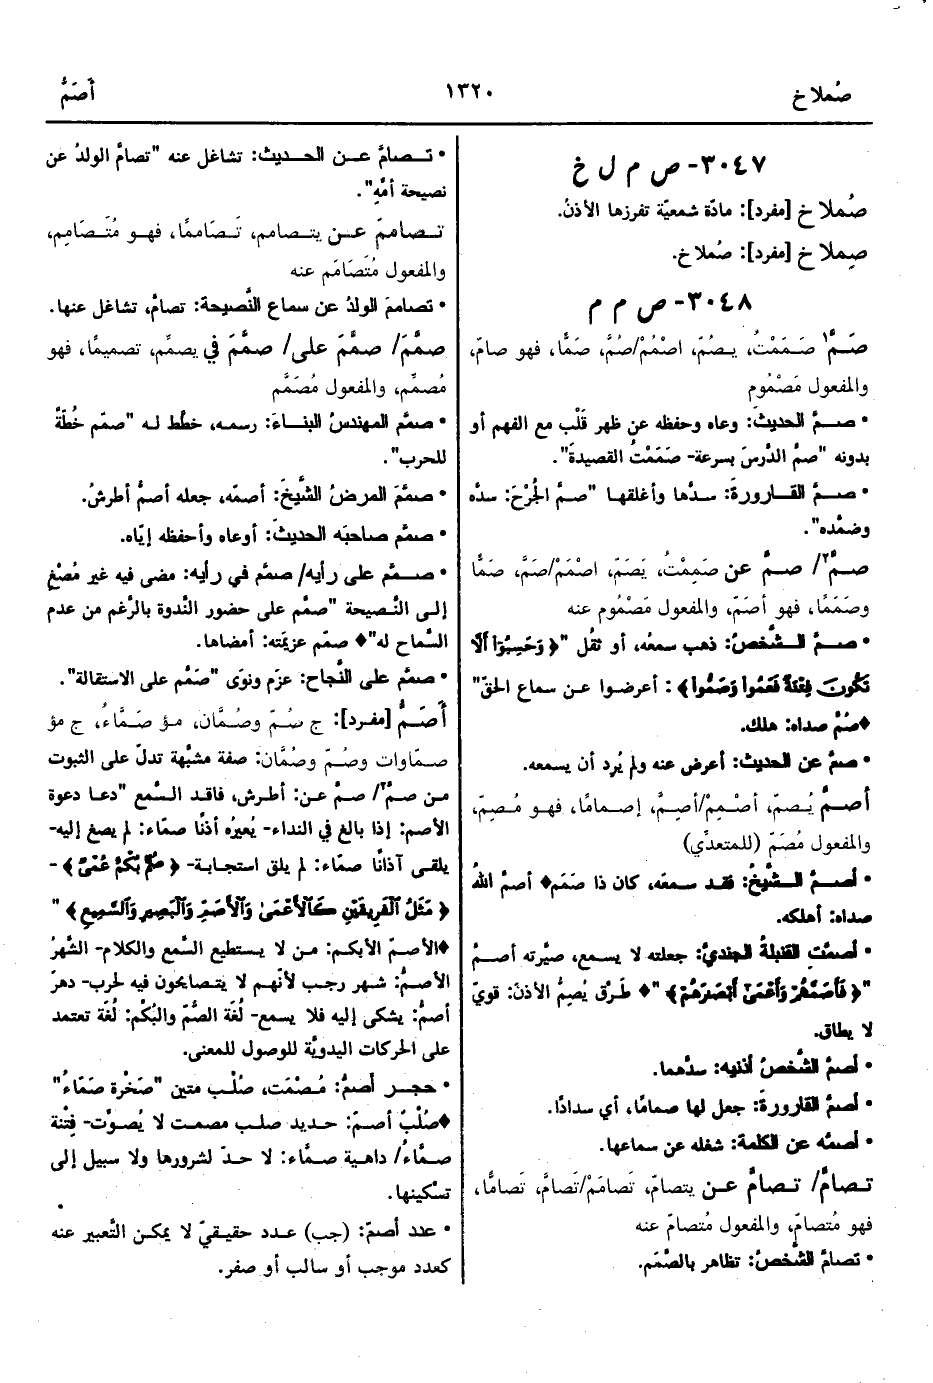 صُملاخ ١٣٢٠ أَصَمُّ
٣٠٤٧- ص م ل خ
صُملاخ [مفرد]: مادّة شمعيّة تفرزها الأذنُ.
صِملاخ [مفرد]: صُملاخ.
٣٠٤٨- ص م م
صَمَّ١ صَمَمْتُ، يَصُمّ، اصْمُمْ/صُمَّ، صَمًّا، فهو صامّ،
والمفعول مَصْمُوم
• صمَّ الحديثَ: وعاه وحفظه عن ظهر قَلْب مع الفهم أو
بدونه "صمَّ الدَّرسَ بسرعة- صَمَمْتُ القصيدةَ".
• صمَّ القارورةَ: سدَّها وأغلقها "صمَّ الجُرْحَ: سدَّه
وضمَّده".
صمَّ٢/ صمَّ عن صَمِمْتُ، يَصَمّ، اصْمَمْ/صَمَّ، صَمًّا
وصَمَمًا، فهو أصَمّ، والمفعول مَصْمُوم عنه
• صمَّ الشَّخصُ: ذهب سمعُه، أو ثقُل "﴿ وَحَسِبُوٓا۟ أَلَّا
تَكُونَ فِتْنَةٌ فَعَمُوا۟ وَصَمُّوا۟ ﴾: أعرضوا عن سماع الحقّ"
♦صُمَّ صداه: هلك.
• صمَّ عن الحديث: أعرض عنه ولم يُرد أن يسمعه.
أصمَّ يُصِمّ، أصْمِمْ/أصِمَّ، إصمامًا، فهو مُصِمّ،
والمفعول مُصَمّ (للمتعدِّي)
• أصمَّ الشَّيخُ: فقد سمعَه، كان ذا صَمَم♦ أصمَّ اللهُ
صداه: أهلكه.
• أصمَّت القنبلةُ الجنديَّ: جعلته لا يسمع، صيَّرته أصمَّ
"﴿ فَأَصَمَّهُمْ وَأَعْمَىٰٓ أَبْصَـٰرَهُمْ ﴾"♦ طَرْق يُصِمُّ الأذنَ: قويّ
لا يطاق.
• أصمَّ الشَّخصُ أذنيه: سدَّهما.
• أصمَّ القارورةَ: جعل لها صمامًا، أي سدادًا.
• أصمَّه عن الكلمة: شغله عن سماعها.
تصامَّ/ تصامَّ عن يتصامّ، تَصامَمْ/تَصامَّ، تَصامًّا،
فهو مُتصامّ، والمفعول مُتصامّ عنه
• تصامَّ الشَّخصُ: تظاهر بالصَّمَم.
• تصامَّ عن الحديث: تشاغل عنه "تصامَّ الولدُ عن
نصيحة أمِّه".
تصاممَ عن يتصامم، تَصَامُمًا، فهو مُتَصَامِم،
والمفعول مُتَصَامَم عنه
• تصاممَ الولدُ عن سماع النَّصيحة: تصامَّ، تشاغل عنها.
صمَّمَ/ صمَّمَ على/ صمَّمَ في يصمِّم، تصميمًا، فهو
مُصمِّم، والمفعول مُصَمَّم
• صمَّم المهندسُ البناءَ: رسمه، خطَّط له "صمّم خُطّةً
للحرب".
• صمَّمَ المرضُ الشَّيخَ: أصمّه، جعله أصمَّ أطرشَ.
• صمَّم صاحبَه الحديثَ: أوعاه وأحفظه إيّاه.
• صمَّم على رأيه/ صمَّم في رأيه: مضى فيه غير مُصْغٍ
إلى النَّصيحة "صمَّم على حضور النَّدوة بالرَّغم من عدم
السَّماح له"♦ صمّم عزيمَته: أمضاها.
• صمَّم على النَّجاح: عزَم ونوَى "صَمَّم على الاستقالة".
أَصَمُّ [مفرد]: ج صُمّ وصُمَّان، مؤ صَمَّاءُ، ج مؤ
صمّاوات وصُمّ وصُمَّان: صفة مشبَّهة تدلّ على الثبوت
من صمَّ٢/ صمَّ عن: أطرش، فاقد السَّمع "دعا دعوةَ
الأصم: إذا بالغ في النداء- يُعيرُه أذنًا صمّاء: لم يصغ إليه-
يلقى آذانًا صمّاء: لم يلق استجابة- ﴿ صُمٌّۢ بُكْمٌ عُمْىٌ ﴾-
﴿ مَثَلُ الْفَرِيقَيْنِ كَالْأَعْمَىٰ وَالْأَصَمِّ وَالْبَصِيرِ وَالسَّمِيعِ ﴾"
♦الأصمّ الأبكم: من لا يستطيع السَّمع والكلام- الشَّهرُ
الأصمُّ: شهر رجب لأنّهم لا يتصايحون فيه لحرب- دهرٌ
أصمُّ: يشكى إليه فلا يسمع- لُغَة الصُّمّ والبُكْم: لُغَة تعتمد
على الحركات اليدويَّة للوصول للمعنى.
• حجر أصمُّ: مُصْمَت، صُلْب متين "صَخْرة صَمّاءُ"
♦صُلْبٌ أصمّ: حديد صلب مصمت لا يُصوِّت- فِتْنة
صمَّاء/ داهية صمَّاء: لا حدّ لشرورها ولا سبيل إلى
تسْكينها.
• عدد أصمّ: (جب) عدد حقيقيّ لا يمكن التَّعبير عنه
كعدد موجب أو سالب أو صفر.